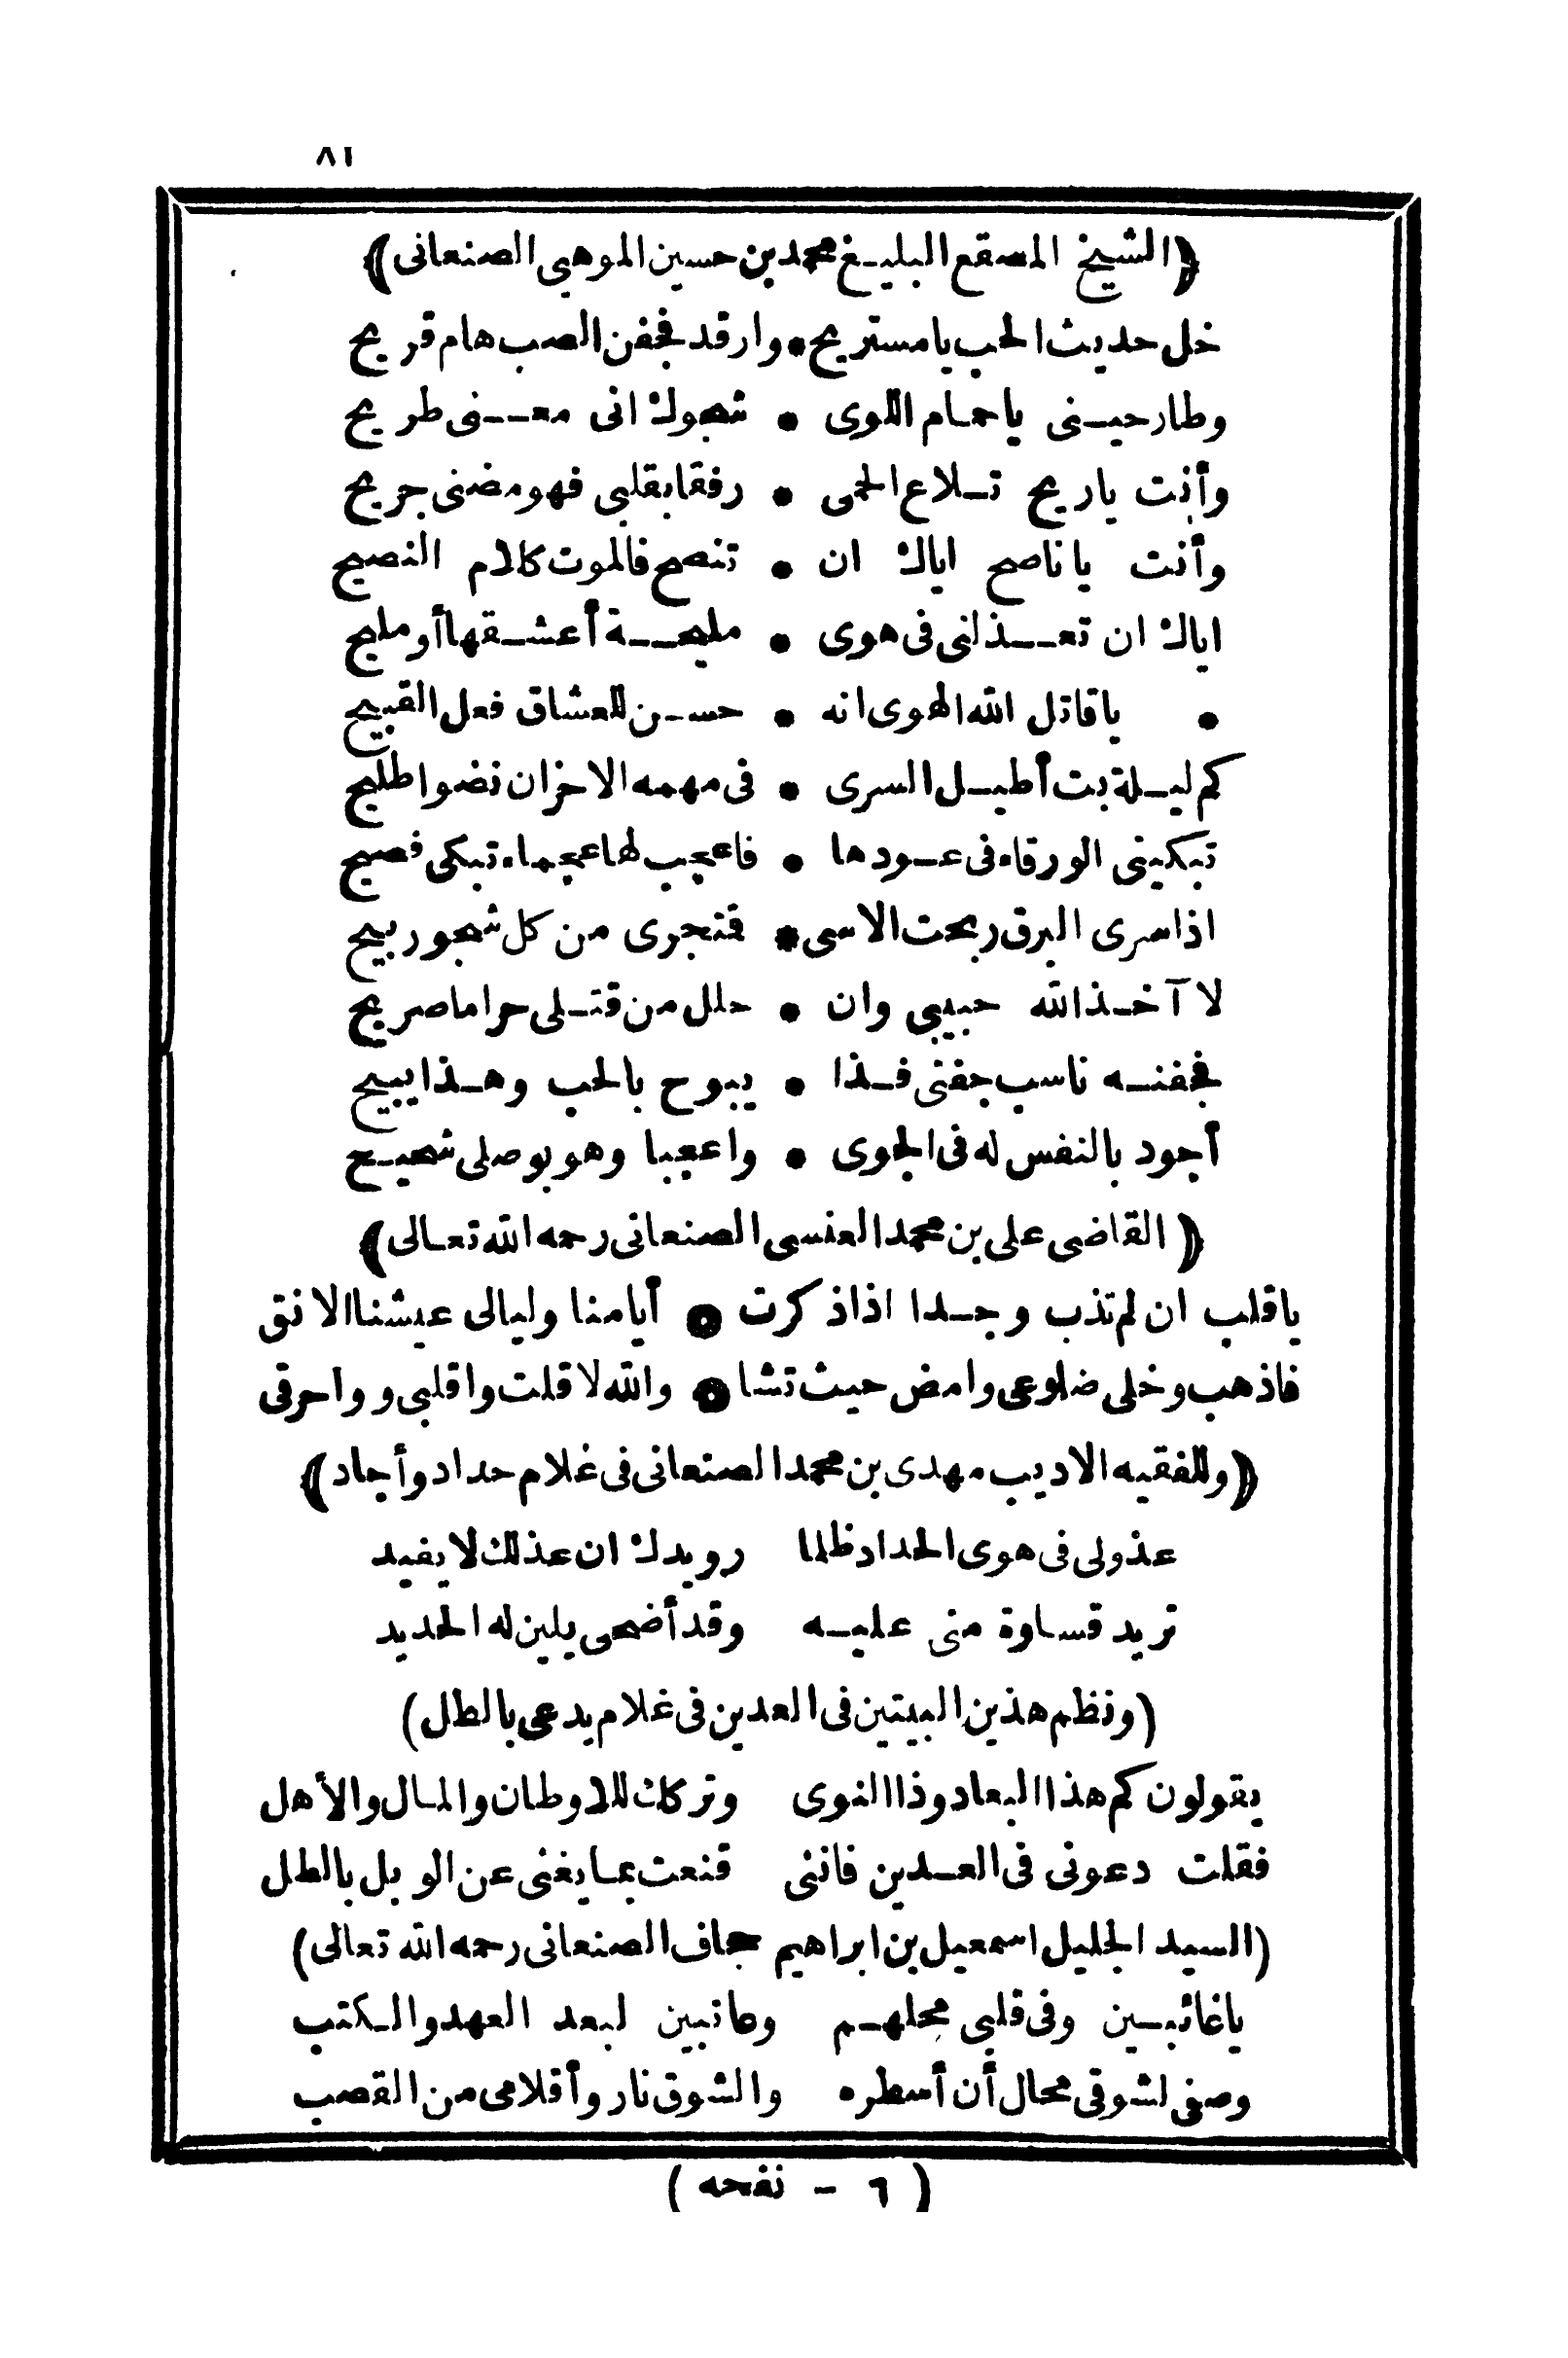 ٨١
﴿الشيخ المصقع البليغ محمد بن حسين الموهبي الصنعانى﴾
خل حديث الحب يا مستريح • وارقد فجفن الصب هام قريح
وطارحينى يا حمام اللوى • شجوك انى معنى طريح
وأنت ياريح تلاع الحمى • رفقا بقلبى فهو مضنى جريح
وأنت يا ناصح اياك ان • تنصح فالموت كلام النصيح
اياك ان تعذلنى فى هوى • مليحة أعشقها أو مليح
• ياقاتل الله الهوى انه • حسن للعشاق فعل القبيح
كم ليلة بت أطيل السرى • فى مهمه الاحزان نضوا طليح
تبكينى الورقاء فى عودها • فاعجب لها عجماء تبكى فصيح
اذا سرى البرق ربحت الاسى • فتجرى من كل شجو ربيح
لا آخذ الله حبيبي وان • حلل من قتلى حراما صريح
فجفنه ناسب جفنى فذا • يبوح بالحب وهذا يبيح
أجود بالنفس له فى الجوى • واعجبا وهو بوصلى شحيح
﴿القاضى على بن محمد العنسى الصنعانى رحمه الله تعالى﴾
يا قلب ان لم تذب وجدا اذا ذكرت • أيامنا وليالى عيشنا الانق
فاذهب وخلى ضلوعى وامض حيث تشا • والله لا قلت واقلبى وواحرقى
﴿وللفقيه الاديب مهدى بن محمد الصنعانى فى غلام حداد وأجاد﴾
عذولى فى هوى الحداد ظلما رويدك ان عذلك لا يفيد
تريد قساوة منى عليه وقد أضحى يلين له الحديد
(ونظم هذين البيتين فى العدين فى غلام يدعى بالطل)
يقولون كم هذا البعاد وذا النوى وتركك للاوطان والمال والأهل
فقلت دعونى فى العدين فاننى قنعت بما يغنى عن الوبل بالطل
(السيد الجليل اسمعيل بن ابراهيم حجاف الصنعانى رحمه الله تعالى)
يا غائبين وفى قلبى محلهم وعاتبين لبعد العهد والكتب
وصفى لشوقى محال أن أسطره والشوق نار وأقلامى من القصب
(٦ - نفحه)